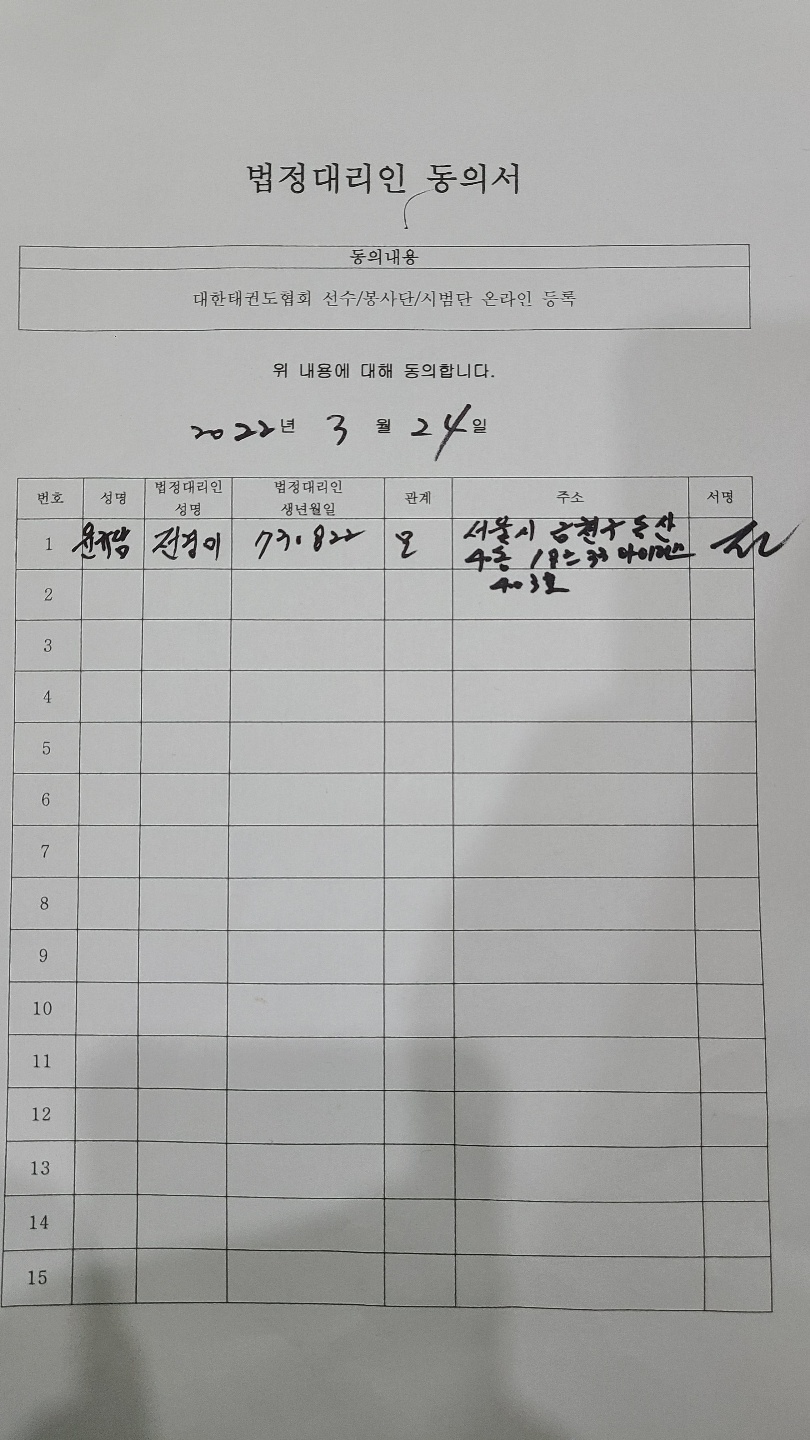 법정대리인 동의서
동의내용
대한태권도협회 선수/봉사단/시범단 온라인 등록
위 내용에 대해 동의합니다.
2022년 3월 24일
번호 성명 법정대리인 성명 법정대리인 생년월일 관계 주소 서명
1 전경미 73.822 모 서울시
403호
2
3
4
5
6
7
8
9
10
11
12
13
14
15